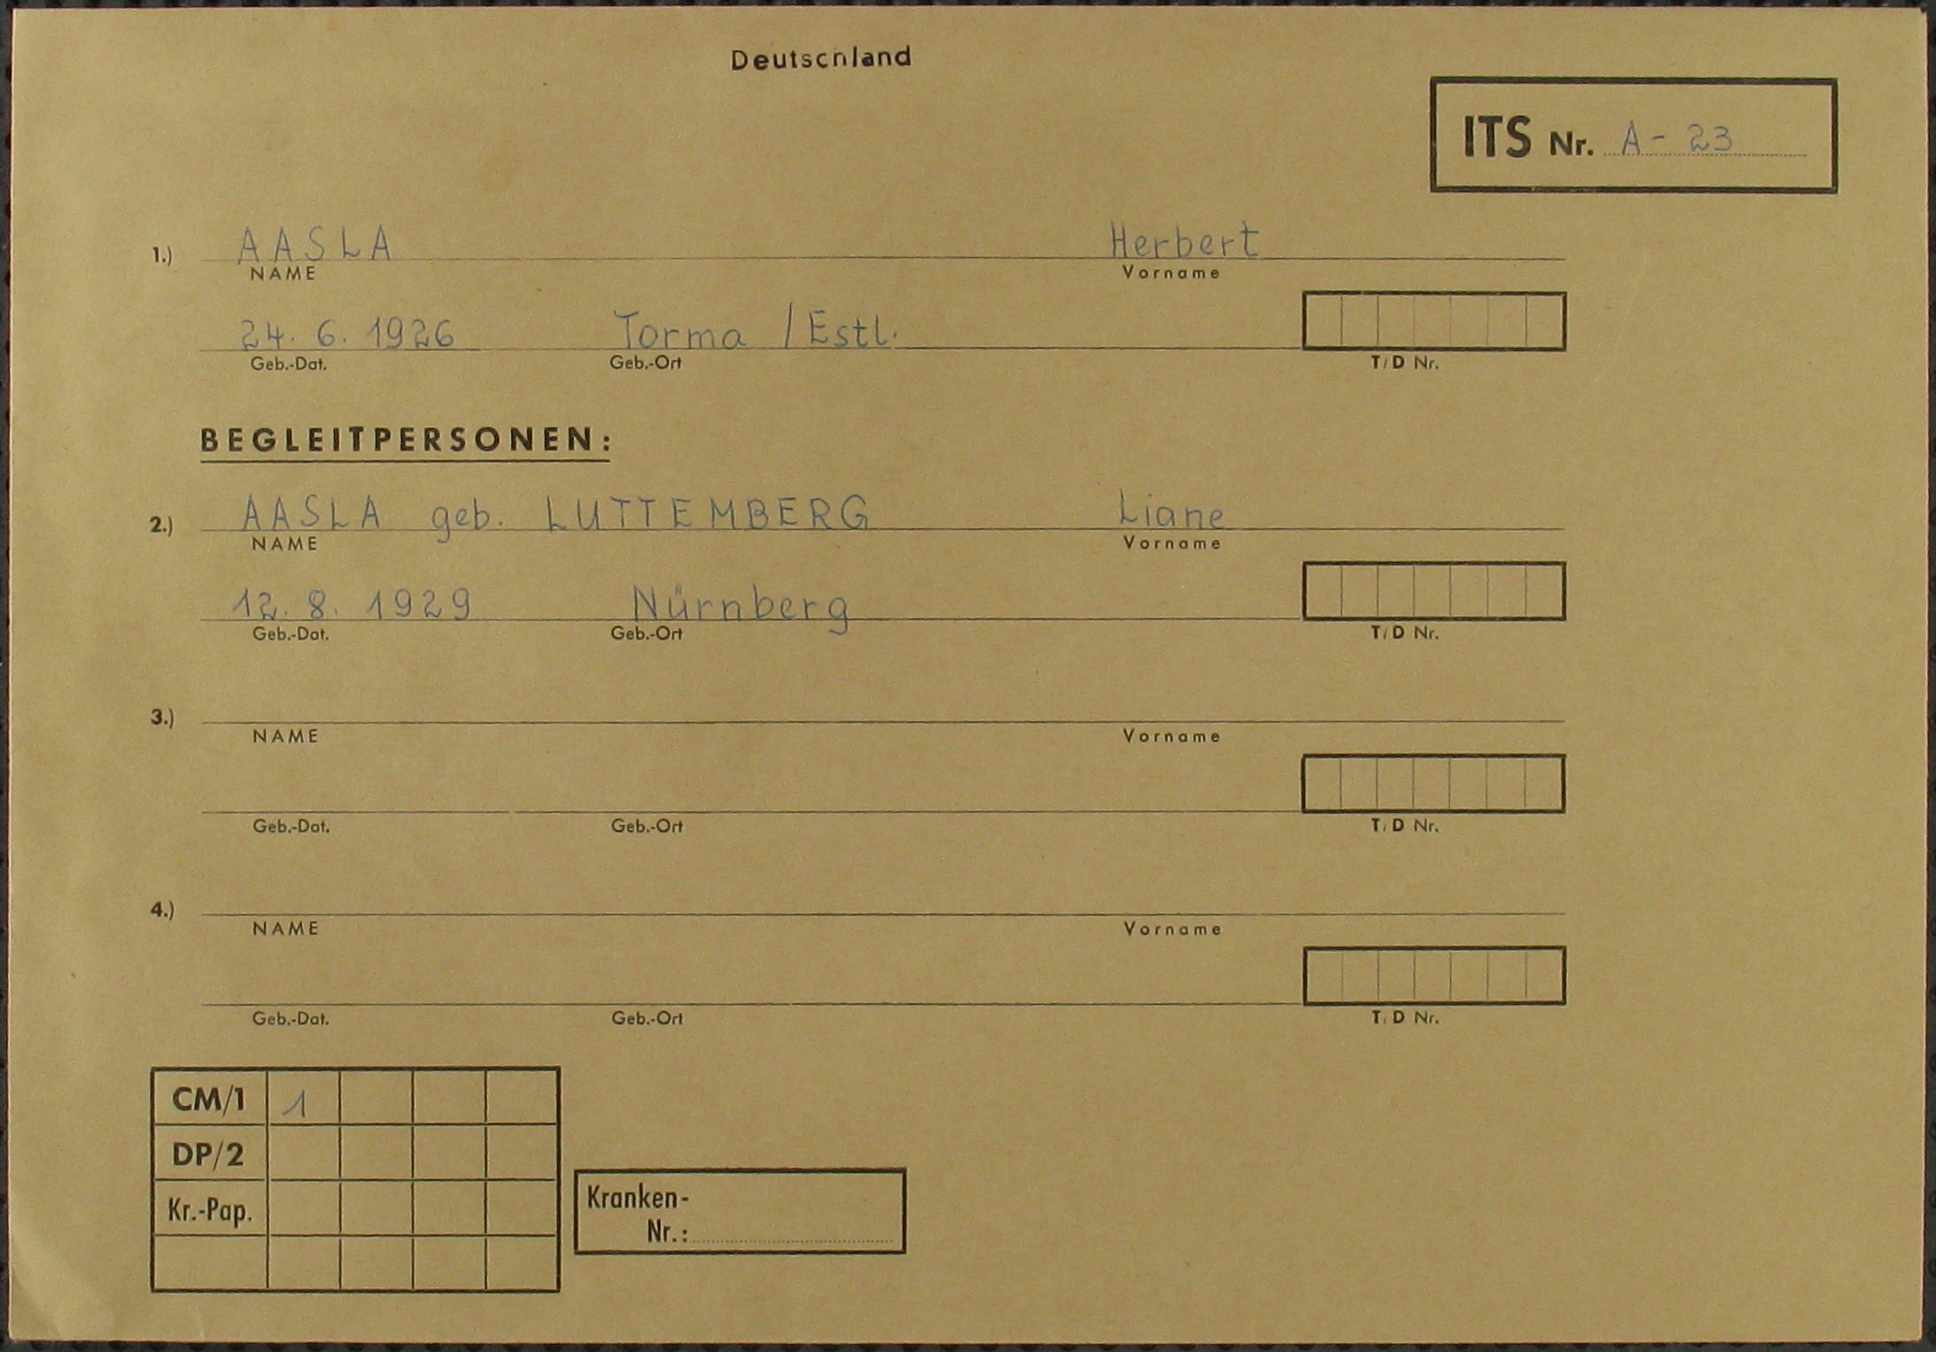 Deutschland
ITS Nr. A - 23
1.) AASLA Herbert
NAME Vorname
24. 6. 1926 Torma / Estl.
Geb.-Dat. Geb.-Ort T/D Nr.
BEGLEITPERSONEN:
2.) AASLA geb. LUTTEMBERG Liane
NAME Vorname
12. 8. 1929 Nürnberg
Geb.-Dat. Geb.-Ort T/D Nr.
3.)
NAME Vorname
Geb.-Dat. Geb.-Ort T/D Nr.
4.)
NAME Vorname
Geb.-Dat. Geb.-Ort T/D Nr.
CM/1 1
DP/2
Kr.-Pap.
Kranken-
Nr.: